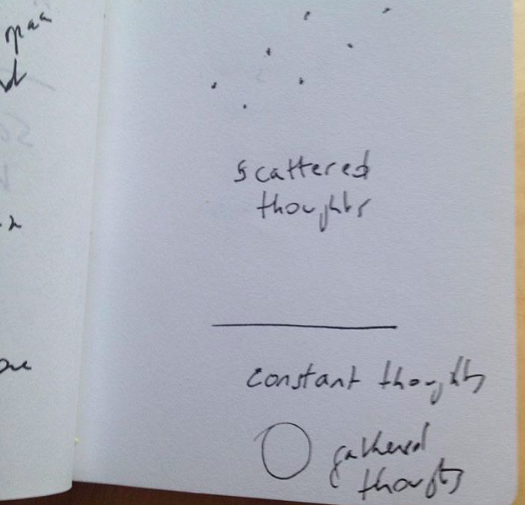 scattered
thoughts
constant thoughts
gathered
thoughts